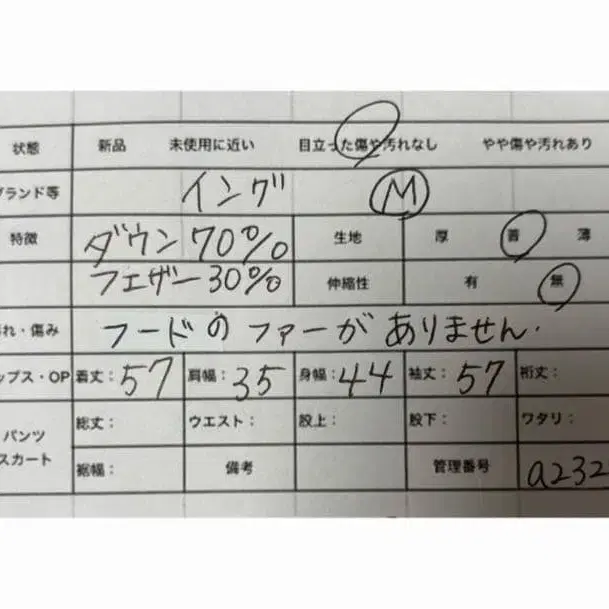 状態 新品 未使用に近い 目立った傷や汚れなし やや傷や汚れあり
ブランド等 イング M
特徴 ダウン 70% 生地 厚 普 薄
フェザー 30% 伸縮性 有 無
汚れ・傷み フードのファーがありません.
トップス・OP 着丈:57 肩幅:35 身幅:44 袖丈:57 裄丈:
パンツ 総丈: ウエスト: 股上: 股下: ワタリ:
スカート 裾幅: 備考 管理番号 a232